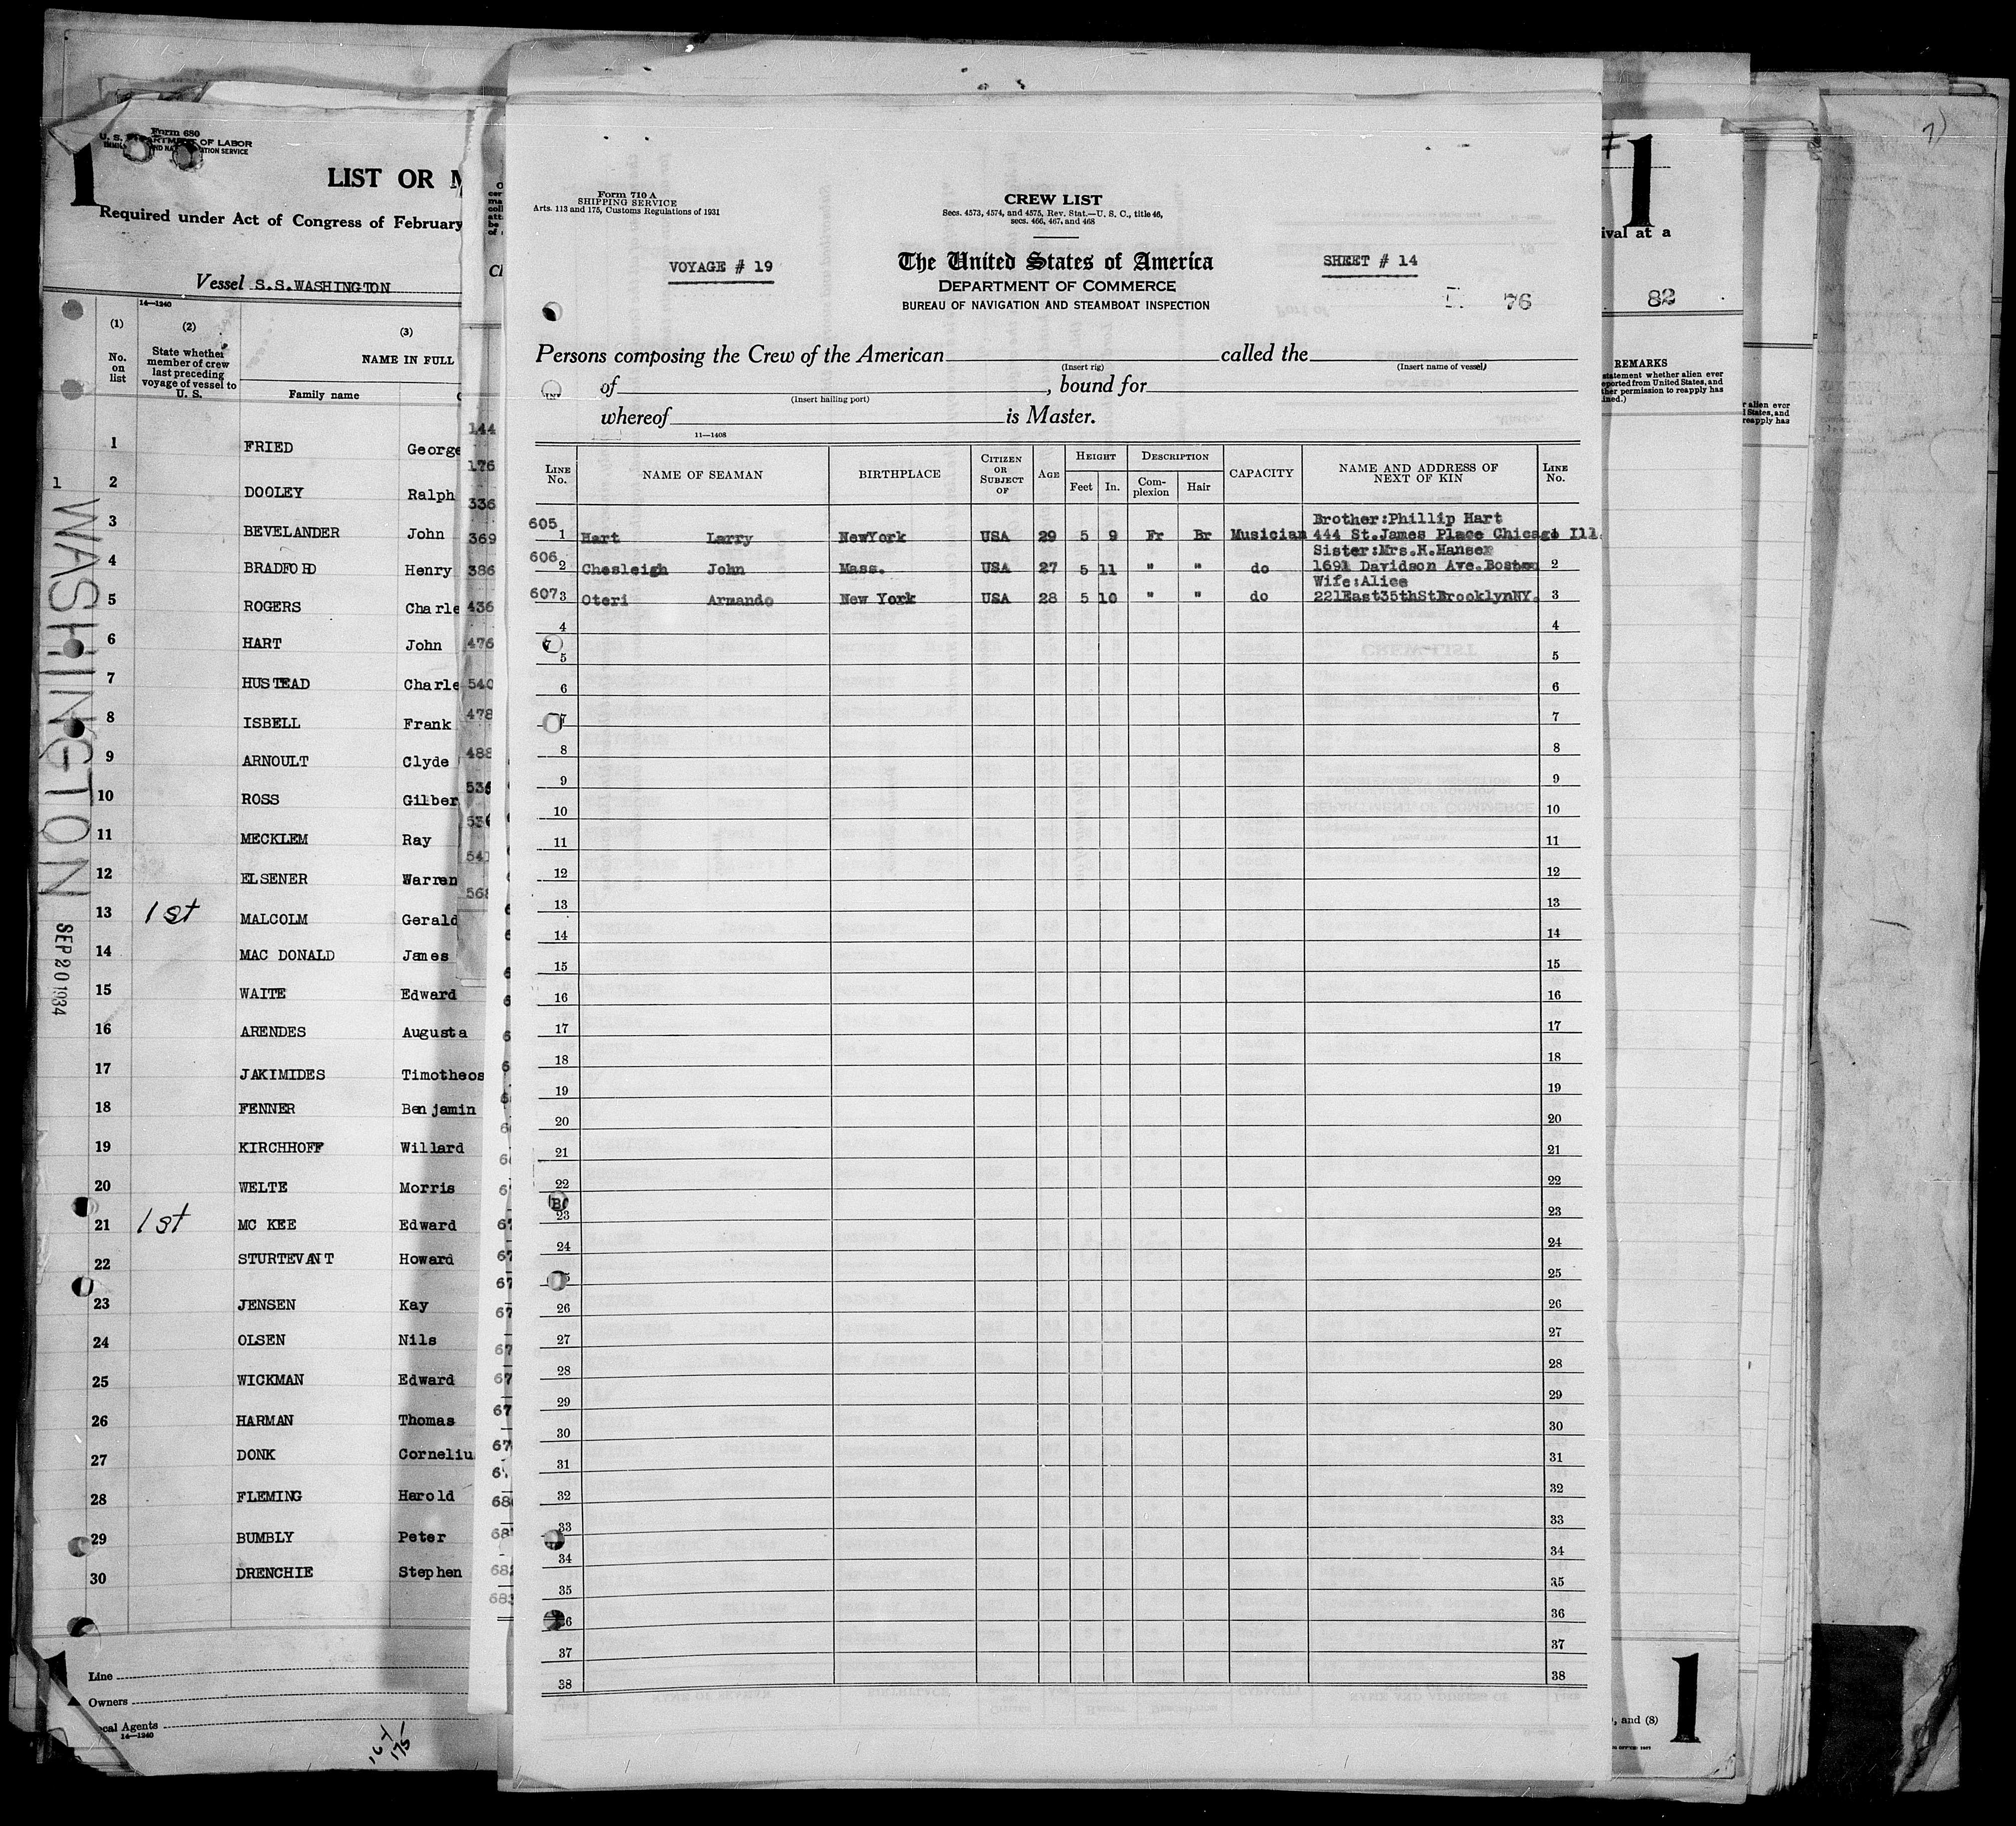 Form 680
U. S. DEPARTMENT OF LABOR
1
LIST OR
Required under Act of Congress of February
Vessel S.S.WASHINGTON
14—1240
(1) (2) (3)
No. on list
State whether member of crew last preceding voyage of vessel to U. S.
NAME IN FULL
Family name
1 FRIED George
2 DOOLEY Ralph
3 BEVELANDER John
4 BRADFORD Henry
5 ROGERS Charle
6 HART John
7 HUSTEAD Charle
8 ISBELL Frank
9 ARNOULT Clyde
10 ROSS Gilber
11 MECKLEM Ray
12 ELSENER Warren
13 1st MALCOLM Gerald
14 MAC DONALD James
15 WAITE Edward
16 ARENDES Augusta
17 JAKIMIDES Timotheos
18 FENNER Benjamin
19 KIRCHHOFF Willard
20 WELTE Morris
21 1st MC KEE Edward
22 STURTEVANT Howard
23 JENSEN Kay
24 OLSEN Nils
25 WICKMAN Edward
26 HARMAN Thomas
27 DONK Corneliu
28 FLEMING Harold
29 BUMBLY Peter
30 DRENCHIE Stephen
Line
Owners
ocal Agents
14—1240
WASHINGTON
SEP 20 1934
144
176
336
369
386
436
476
540
478
488
Form 710 A
SHIPPING SERVICE
Arts. 113 and 175, Customs Regulations of 1931
CREW LIST
Secs. 4573, 4574, and 4575, Rev. Stat.—U. S. C., title 46,
secs. 466, 467, and 468
VOYAGE # 19
The United States of America
SHEET # 14
DEPARTMENT OF COMMERCE
BUREAU OF NAVIGATION AND STEAMBOAT INSPECTION
76
Persons composing the Crew of the American called the
(Insert rig) (Insert name of vessel)
of , bound for
(Insert hailing port)
whereof is Master.
11—1408
LINE No. NAME OF SEAMAN BIRTHPLACE CITIZEN OR SUBJECT OF AGE HEIGHT Feet In. DESCRIPTION Complexion Hair CAPACITY NAME AND ADDRESS OF NEXT OF KIN LINE No.
605 Brother:Phillip Hart
1 Hart Larry NewYork USA 29 5 9 Fr Br Musician 444 St.James Place Chicago Ill. 1
606 Sister:Mrs.H.Hansen
2 Chesleigh John Mass. USA 27 5 11 " " do 1691 Davidson Ave.Boston 2
Wife:Alice
607 3 Oteri Armando New York USA 28 5 10 " " do 221East35thStBrooklynNY. 3
4 4
5 5
6 6
7 7
8 8
9 9
10 10
11 11
12 12
13 13
14 14
15 15
16 16
17 17
18 18
19 19
20 20
21 21
22 22
23 23
24 24
25
26 26
27 27
28 28
29 29
30 30
31 31
32 32
33 33
34 34
35 35
36 36
37 37
38 38
1
ival at a
82
REMARKS
statement whether alien ever
eported from United States, and
her permission to reapply has
ined.)
r alien ever
l States, and
reapply has
, and (8)
1